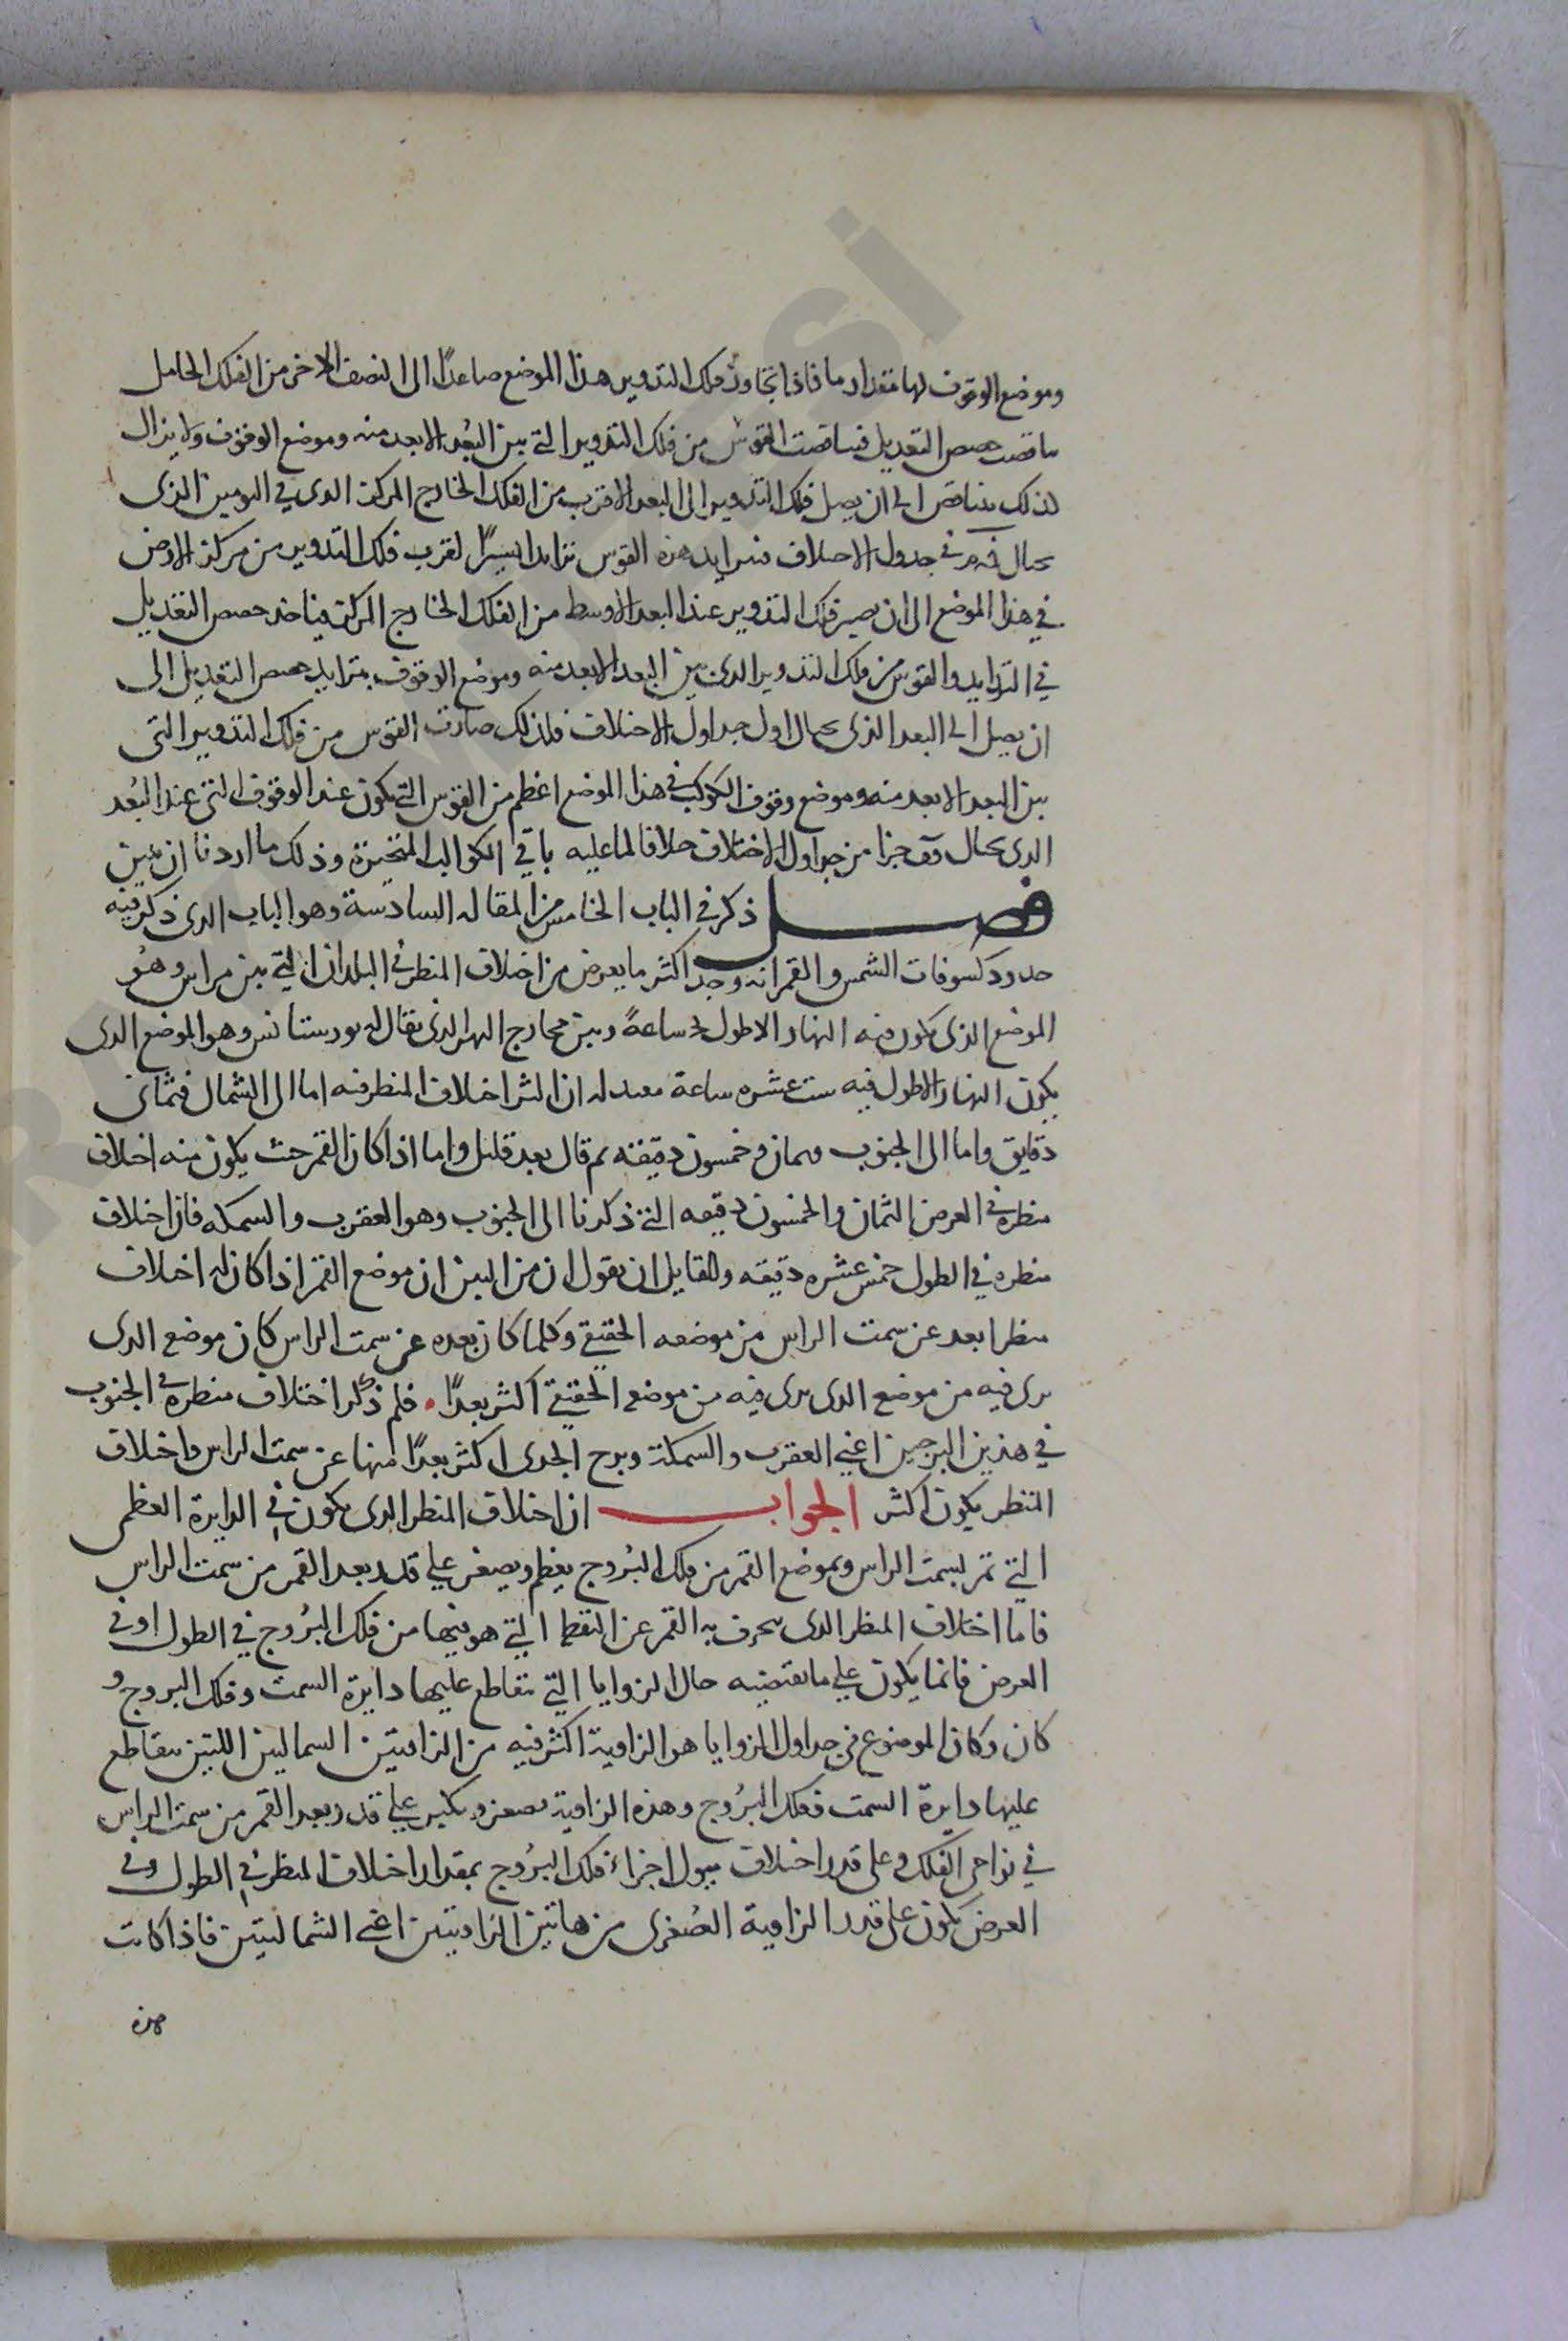 وموضع الوقوف لها مقدار ما فاذا تجاوز فلك التدوير هذا الموضع صاعدًا الى النصف الاخر من الفلك الحامل
تناقصت حصص التعديل فتناقصت القوس من فلك التدوير التي بين البُعد الابعد منه وموضع الوقوف ولا يزال
لذلك يتناقص الى ان يصل فلك التدوير الى البعد الاقرب من الفلك الخارج المركز الذي في اليومين الذى
بحيال في جدول الاختلاف فتزايد هذه القوس تزايدا يسيرًا لقرب فلك التدوير من مركز الارض
في هذا الموضع الى ان يصير فلك التدوير عند البعد الاوسط من الفلك الخارج المركز فياخذ حصص التعديل
في التزايد والقوس من فلك التدوير الذى بين البعد الابعد منه وموضع الوقوف بتزايد حصص التعديل الى
ان يصل الى البعد الذى بحيال اول جداول الاختلاف فلذلك صارت القوس من فلك التدوير التى
بين البعد الابعد منه وموضع وقوف الكوكب في هذا الموضع اعظم من القوس التي يكون عند الوقوف التى عند البُعد
الذى بحيال جزا من جداول الاختلاف خلافا لما عليه باقي الكواكب المتحيرة وذلك ما اردنا ان نبين
فصل ذكر في الباب الخامس من المقاله السادسة وهو الباب الذى ذكر فيه
حدود كسوفات الشمس والقمر انه وجد اكثر ما يعرض من اختلاف المنظر في البلدان التي بين مراس وهُو
الموضع الذى يكون فيه النهار الاطول ساعةً وبين مخارج النهر الذى يقال له بورستانس وهو الموضع الذى
يكون النهار الاطول فيه ست عشره ساعة معتدله ان اكثر اختلاف المنظر فيه اما الى الشمال فثماني
دقايق واما الى الجنوب فثمان وخمسون دقيقه ثم قال بعد قليل واما اذا كان القمر حيث يكون منه اختلاف
منظره في العرض الثمان والخمسون دقيقه التى ذكرنا الى الجنوب وهو العقرب والسمكه فان اختلاف
منظره في الطول خمس عشره دقيقه ولقايل ان يقول ان من البين ان موضع القمر اذا كان له اختلاف
منظر ابعد عن سمت الراس من موضعه الحقيقي وكلما كان بعده عن سمت الراس كان موضع الذى
يرى فيه من موضع الذى يرى فيه من موضع الحقيقي اكثر بعدًا. فلم ذكر اختلاف منظره في الجنوب
في هذين البرجين اعني العقرب والسمكة وبرج الجدى اكثر بعدًا منها عن سمت الراس واختلاف
المنظر يكون اكثر الجواب ان اختلاف المنظر الذى يكون في الدايرة العظمى
التي تمر بسمت الراس وبموضع القمر من فلك البُروج يعظم ويصغر على قدر بعد القمر من سمت الراس
فاما اختلاف المنظر الذى ينحرف به القمر عن النقط التي هو فيها من فلك البُروج في الطول او في
العرض فانما يكون على ما يقتضيه حال الزوايا التي يتقاطع عليها دايرة السمت وفلك البروج و
كان وكان الموضوع في جداول الزوايا هو الزاوية اكثر فيه من الزاويتين الشماليتين اللتين يتقاطع
عليها دايرة السمت وفلك البُروج وهذه الزاوية تصغر وتكبر على قدر بعد القمر من سمت الراس
في نواحي الفلك وعلى قدر اختلاف ميول اجزاء فلك البُروج بمقدار اختلاف المنظر في الطول وفي
العرض يكون على قدر الزاوية الصُغرى من هاتين الزاويتين اعني الشماليتين فاذا كانت
هذه